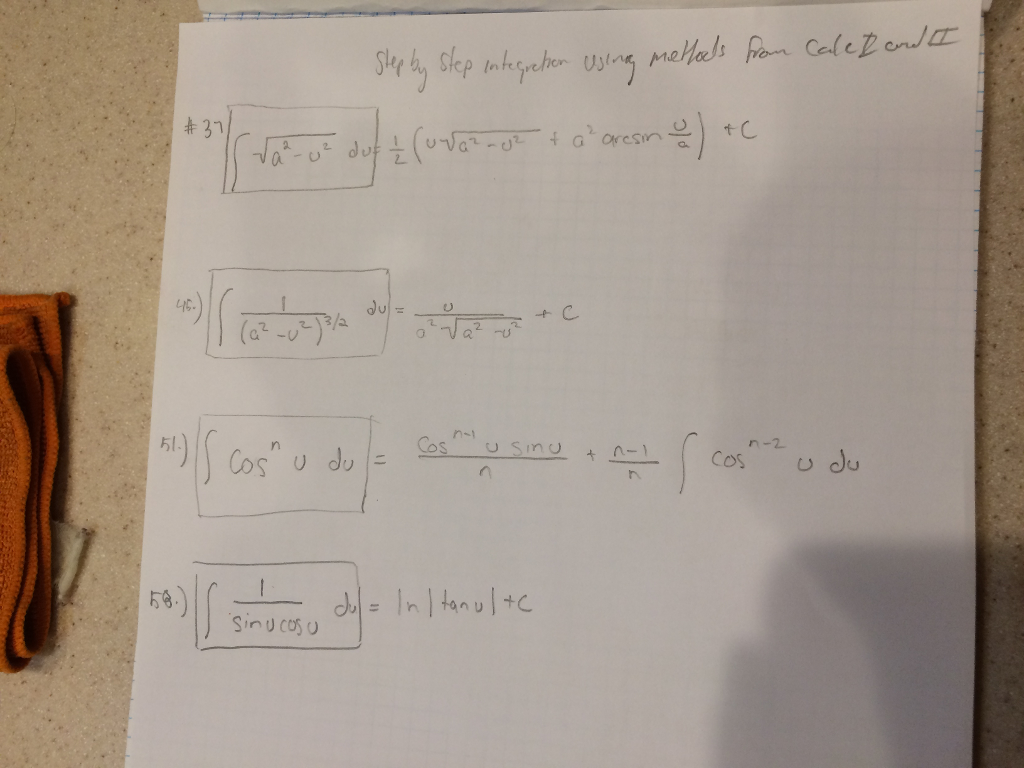 Step by Step integration using methods from Calc I and II
#37 ∫ √(a² - u²) du = 1/2 (u√(a² - u²) + a² arcsin u/a) + C
45.) ∫ 1/(a² - u²)^(3/2) du = u/(a²√(a² - u²)) + C
51.) ∫ cosⁿ u du = (cosⁿ⁻¹ u sin u)/n + (n-1)/n ∫ cosⁿ⁻² u du
58.) ∫ 1/(sin u cos u) du = ln|tan u| + C